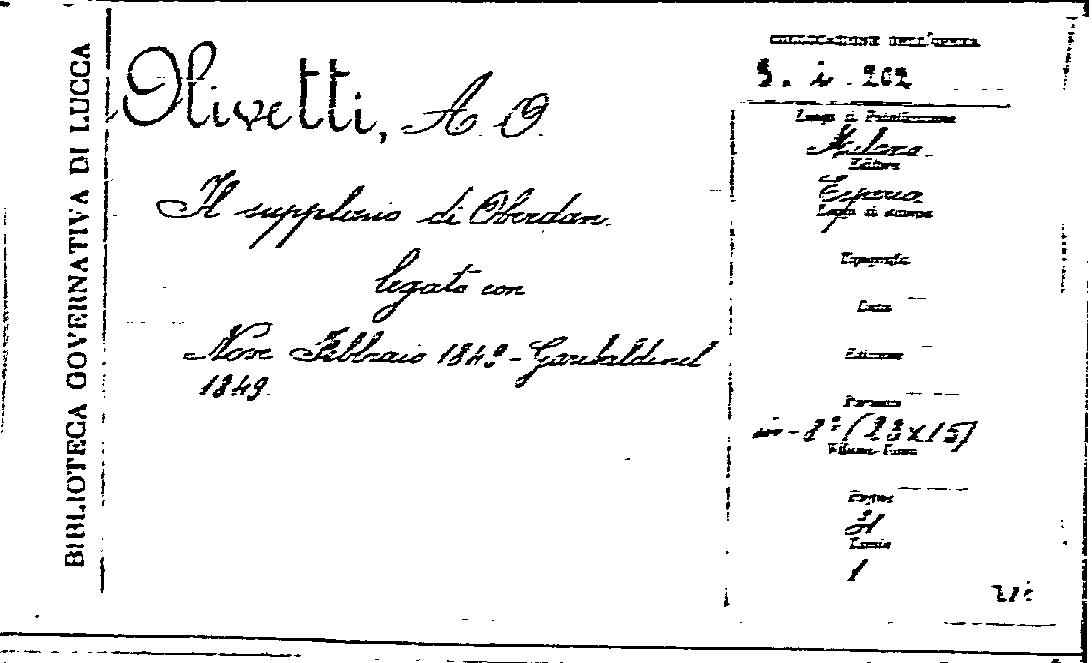 BIBLIOTECA GOVERNATIVA DI LUCCA
Olivetti, A. O.
Il supplizio di Oberdan.
legato con
Nove Febbraio 1849 - Garibaldi nel
1849.
COLLOCAZIONE DELL'OPERA
202
Luogo di Pubblicazione
Milano
Editore
Esperia
Luogo di stampa
Tipografia
Data
Edizione
Formato
in-8° (23x15)
Pagine
1